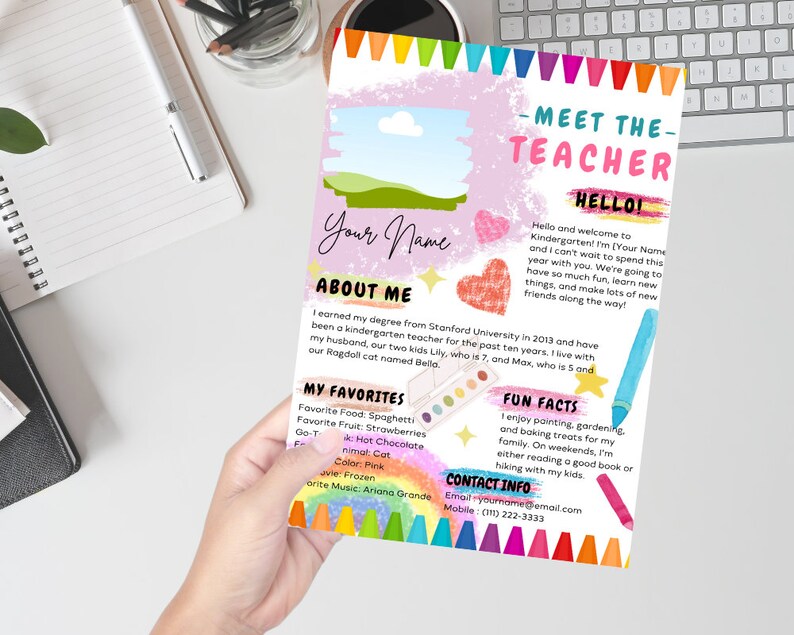 -MEET THE-
TEACHER
Your Name
HELLO!
Hello and welcome to
Kindergarten! I'm [Your Name
and I can't wait to spend this
year with you. We're going to
have so much fun, learn new
things, and make lots of new
friends along the way!
ABOUT ME
I earned my degree from Stanford University in 2013 and have
been a kindergarten teacher for the past ten years. I live with
my husband, our two kids Lily, who is 7, and Max, who is 5 and
our Ragdoll cat named Bella.
MY FAVORITES
Favorite Food: Spaghetti
Favorite Fruit: Strawberries
Hot Chocolate
Animal: Cat
Color: Pink
Frozen
Music: Ariana Grande
FUN FACTS
I enjoy painting, gardening,
and baking treats for my
family. On weekends, I'm
either reading a good book or
hiking with my kids.
CONTACT INFO
Email : yourname@email.com
Mobile : (111) 222-3333